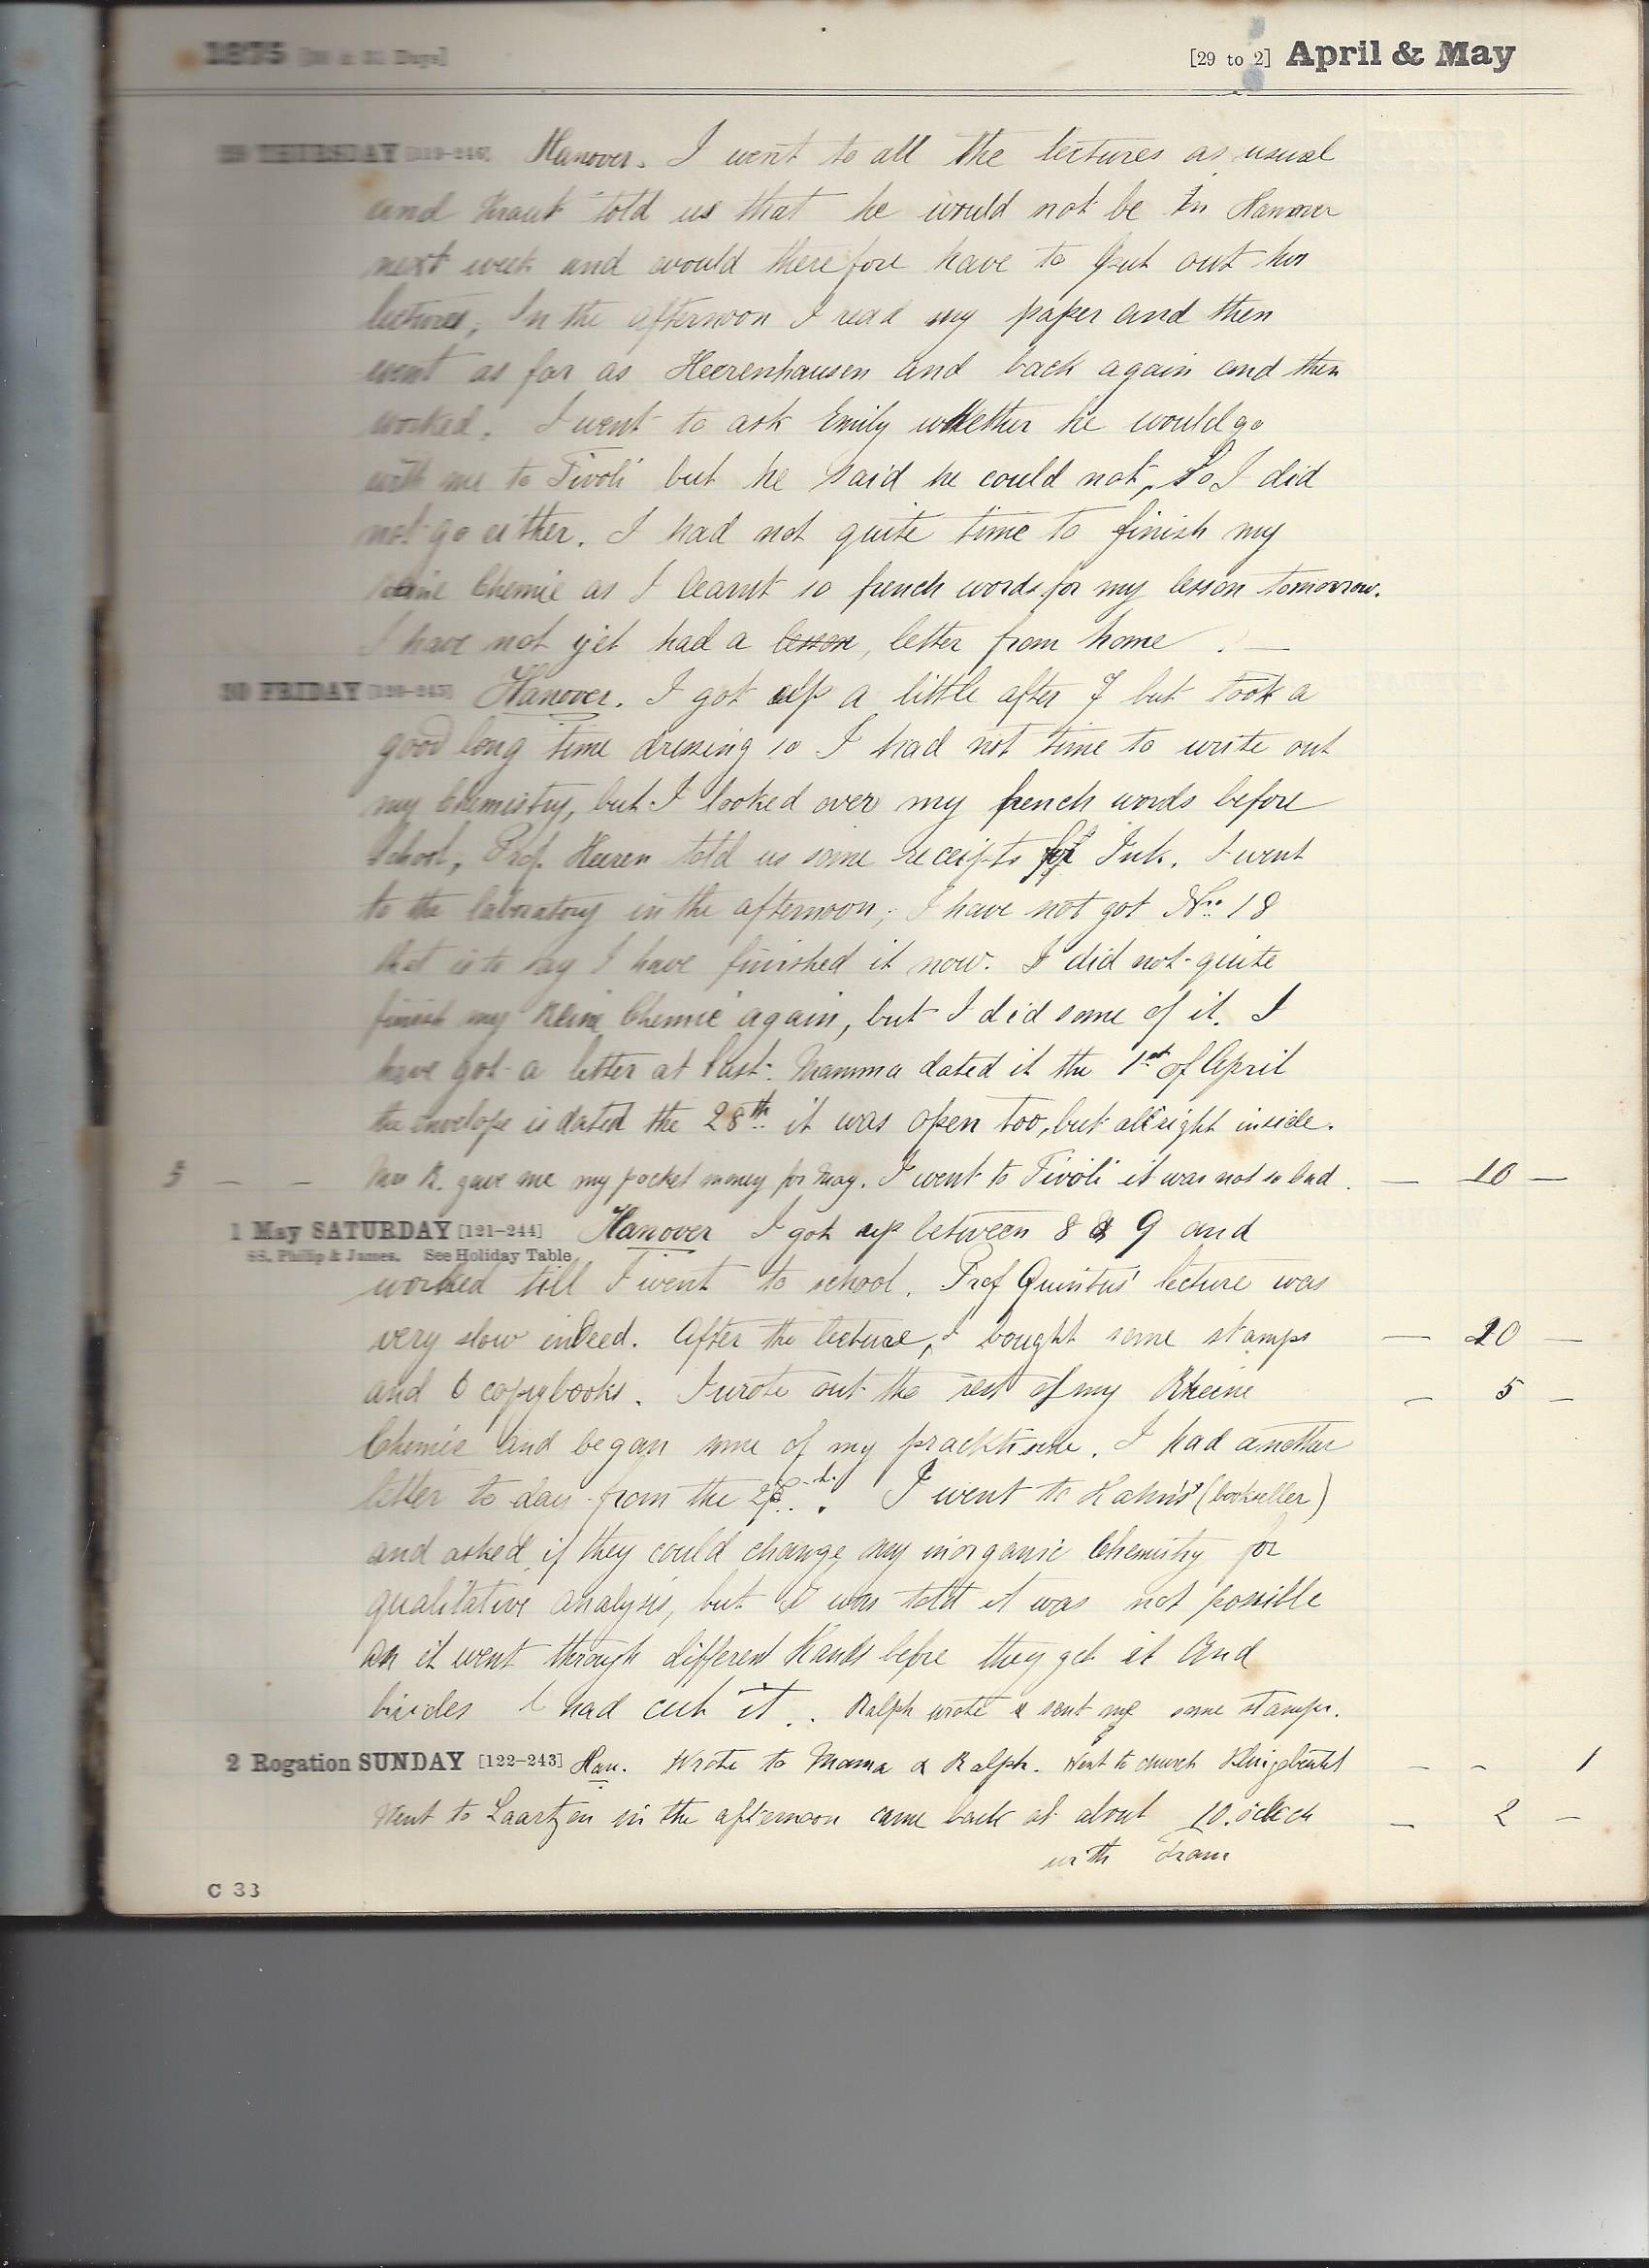 1875 [30 & 31 Days] [29 to 2] April & May
29 THURSDAY [119-246] Hanover. I went to all the lectures as usual
and Kraut told us that he would not be in Hanover
next week and would therefore have to put out his
lectures, In the afternoon I read my paper and then
went as far as Heerenhausen and back again and then
worked. I went to ask Emily whether he would go
with me to Tivoli but he said he could not, so I did
not go either. I had not quite time to finish my
Chemie as I learnt so french words for my lesson tomorrow.
I have not yet had a lesson, letter from home . —
30 FRIDAY [120-245] Hanover. I got up a little after 7 but took a
good long time dressing so I had not time to write out
my Chemistry, but I looked over my french words before
School, Prof. Heeren told us some receipts for Ink. I went
to the laboratory in the afternoon, I have not got No. 18
that is to say I have finished it now. I did not quite
finish my Reine Chemie again, but I did some of it. I
have got a letter at last. Mamma dated it the 1st of April
the envelope is dated the 28th it was open too, but all right inside.
5 — — Mrs R. gave me my pocket money for May. I went to Tivoli it was not so bad. — 10 —
1 May SATURDAY [121-244] Hanover I got up between 8 & 9 and
SS. Philip & James. See Holiday Table.
worked till I went to school. Prof Quintus' lecture was
very slow indeed. After the lecture, I bought some stamps — 20 —
and 6 copybooks. I wrote out the rest of my Rheine — 5 —
Chemie and began some of my pracktische. I had another
letter to day from the 28th. I went to Hahn's (bookseller)
and asked if they could change my inorganic Chemistry for
qualitative analysis, but I was told it was not possible
as it went through different hands before they get it and
besides I had cut it.. Ralph wrote & sent me some stamps.
2 Rogation SUNDAY [122-243] Han. Wrote to Mama & Ralph. Went to church Klingebeutel — — 1
Went to Laartzen in the afternoon came back at about 10. o'clock — 2 —
with Tram
C 33